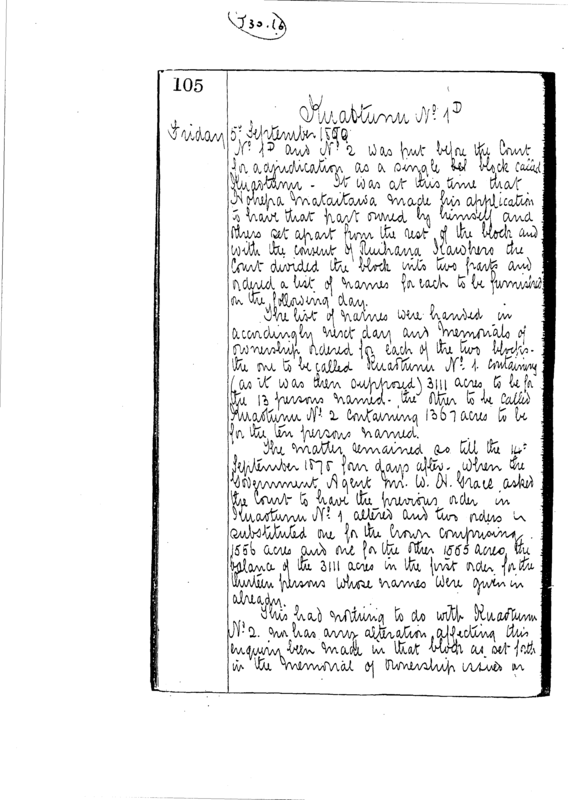 J 30.16
105
Kuaotunu No 1D
Friday 5th September 1890
No 1D and No 2 was put before the Court
for adjudication as a single bel block called
Kuaotunu - It was at this time that
Nohepa Mataitawa made his application
to have that part owned by himself and
others set apart from the rest of the block and
with the consent of Ruihana Kawhero the
Court divided the block into two parts and
ordered a list of names for each to be furnished
on the following day.
The list of names were handed in
accordingly next day and memorials of
ownership ordered for each of the two blocks -
the one to be called Kuaotunu No 1. containing
(as it was then supposed) 3111 acres to be for
the 13 persons named - the other to be called
Kuaotunu No 2 containing 1367 acres to be
for the ten persons named.
The matter remained so till the 14th
September 1878 four days after - when the
Government Agent Mr. W. H. Grace asked
the Court to have the previous order in
Kuaotunu No 1 altered and two orders
substituted one for the Crown comprising
1556 acres and one for the other 1555 acres, the
balance of the 3111 acres in the first order for the
thirteen persons whose names were given in
already.
This had nothing to do with Kuaotunu
No 2. nor has any alteration affecting this
enquiry been made in that block as set forth
in the memorial of ownership issued on